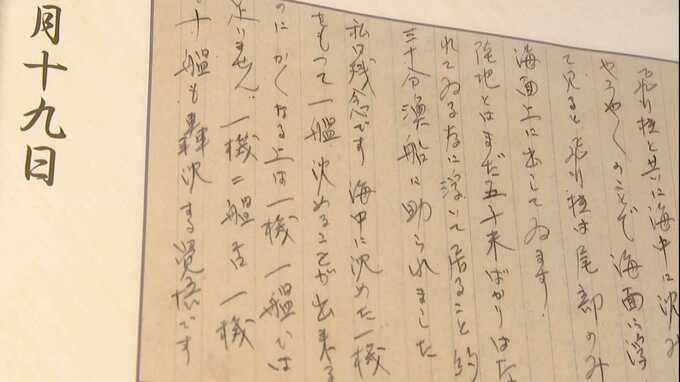 飛行機と共に海中に沈み
やうやくのことで海面に浮
て見ると飛行機は尾部のみ
海面上に出してゐます.
陸地とはまだ五千米ばかりはな
れてゐるなに浮いて居ること約
三十分漁船に助られました
私は残念です 海中に沈めた一機
をもつて一艦沈めることが出来る
のに かくなる上は一機一艦では
足いません。一機二艦否一機
十艦も轟沈する覚悟です
月十九日